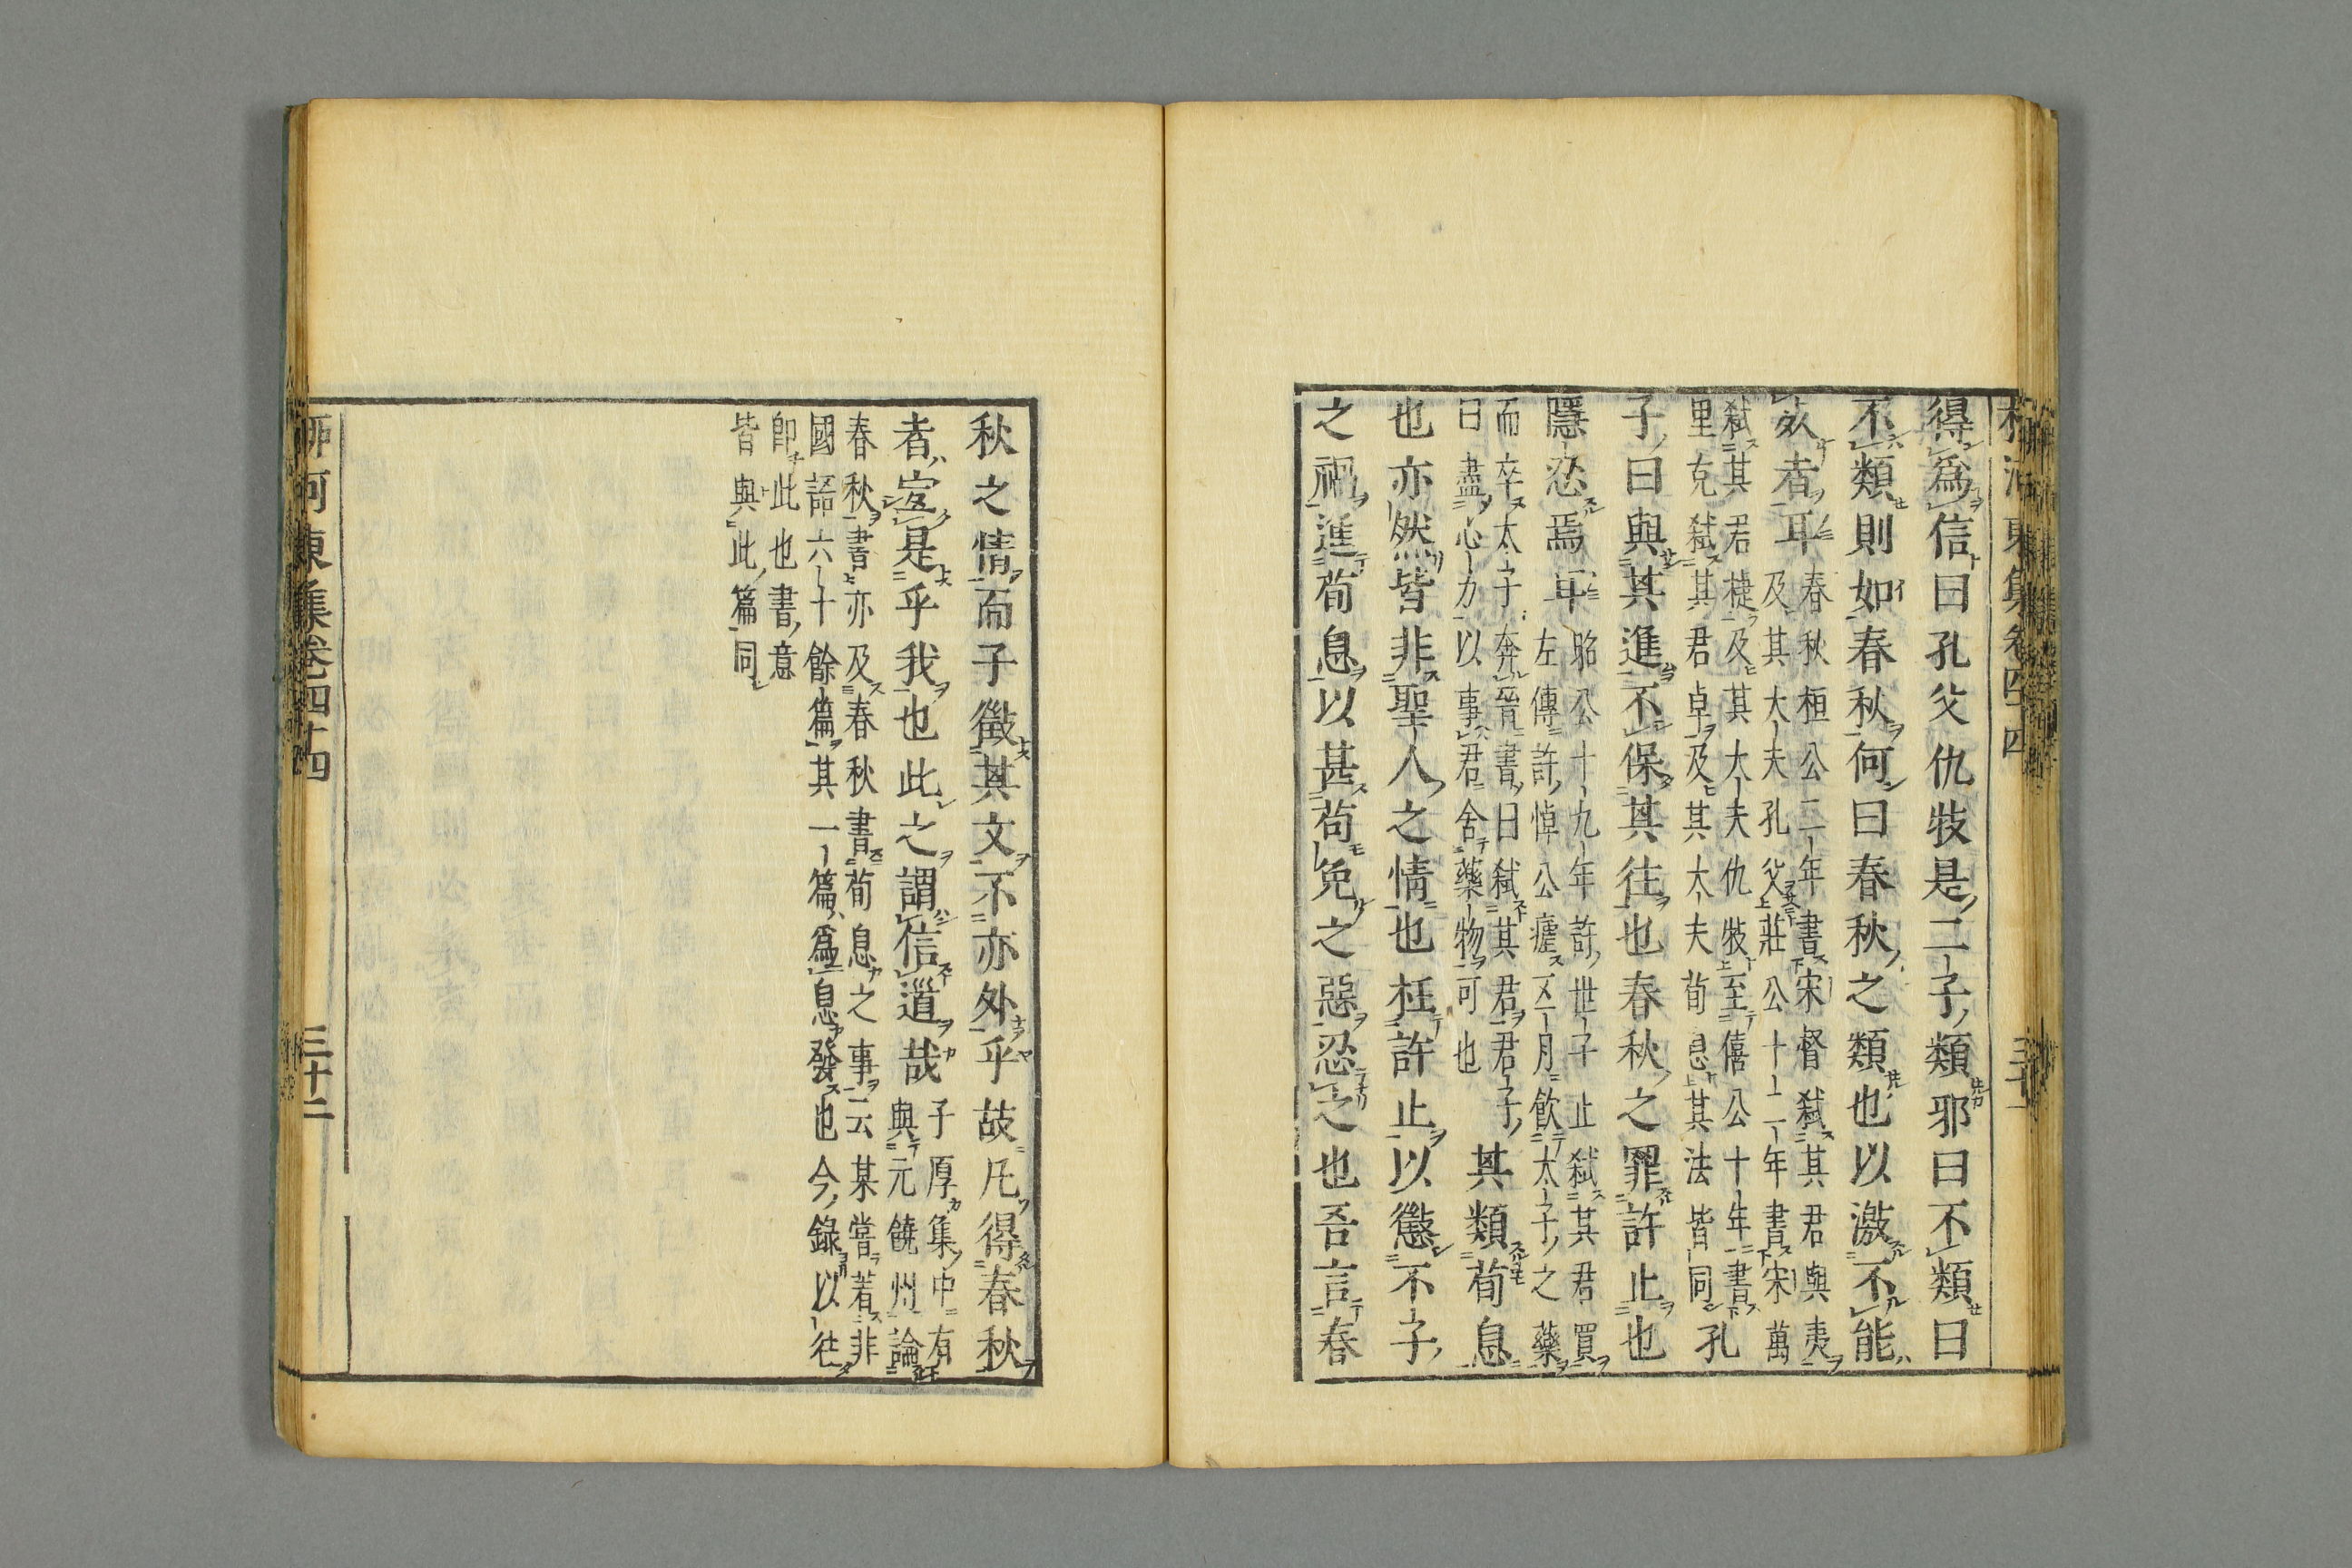 得爲信曰孔父仇牧是二子類邪曰不類曰
不類則如春秋何曰春秋之類也以激不能
死者耳春秋桓公二年書宋督弑其君與夷
及其大夫孔父莊公十二年書宋萬
弑其君捷及其大夫仇牧至僖公十年書
里克弑其君卓及其大夫荀息其法皆同孔
子曰與其進不保其往也春秋之罪許止也
隱忍焉耳昭公十九年許世子止弑其君買
左傳許悼公瘧五月飲太子之藥
而卒太子奔晉書曰弑其君君子
曰盡心力以事君舍藥物可也其類荀息
也亦然皆非聖人之情也枉許止以懲不子
之禍進荀息以甚苟免之惡忍之也吾言春
秋之情而子徵其文不亦外乎故凡得春秋
者宜是乎我也此之謂信道哉子厚集中有
與元饒州論
春秋書亦及春秋書荀息之事云某嘗著非
國語六十餘篇其一篇爲息發也今錄以往
卽此也書意
皆與此篇同
柳河東集卷四十四
三十二